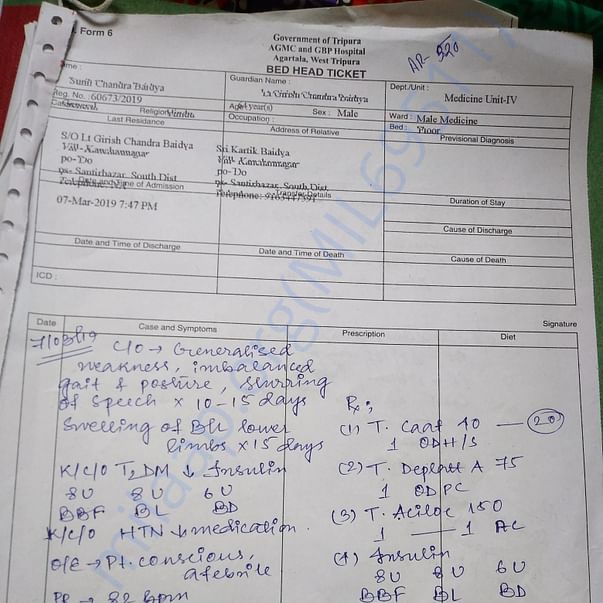 Form 6
Government of Tripura
AGMC and GBP Hospital
Agartala, West Tripura
BED HEAD TICKET
AR- 920
Name :
Sunil Chandra Baidya
Guardian Name :
Lt Girish Chandra Baidya
Dept./Unit :
Medicine Unit-IV
Reg. No.: 60673/2019
Religion Hindu
Age(year(s)
Sex : Male
Ward : Male Medicine
Last Residance
Occupation :
Bed : Floor
Address of Relative
Previsional Diagnosis
S/O Lt Girish Chandra Baidya
Vill- Kanchannagar
po-Do
ps- Santirbazar, South Dist
Sri Kartik Baidya
Vill- Kanchannagar
po-Do
ps- Santirbazar, South Dist
Date and Time of Admission
Transfer Details
Duration of Stay
07-Mar-2019 7:47 PM
Cause of Discharge
Date and Time of Discharge
Date and Time of Death
Cause of Death
ICD :
Signature
Date
Case and Symptoms
Prescription
Diet
7/03/19
C/O → Generalised
weakness, imbalanced
gait & posture, slurring
of speech x 10-15 days
Swelling of B/L lower
limbs x 15 days
K/C/O T2DM ↓ Insulin
8U 8U 6U
BBF BL BD
K/C/O HTN ↓ medication.
O/E → Pt. conscious,
afebrile
PR → 82 bpm
Rx;
(1) T. Caat 40 — (20)
1 ODH/S
(2) T. Deplatt A 75
1 ODPC
(3) T. Aciloc 150
1 — 1 AC
(4) Insulin
8U 8U 6U
BBF BL BD